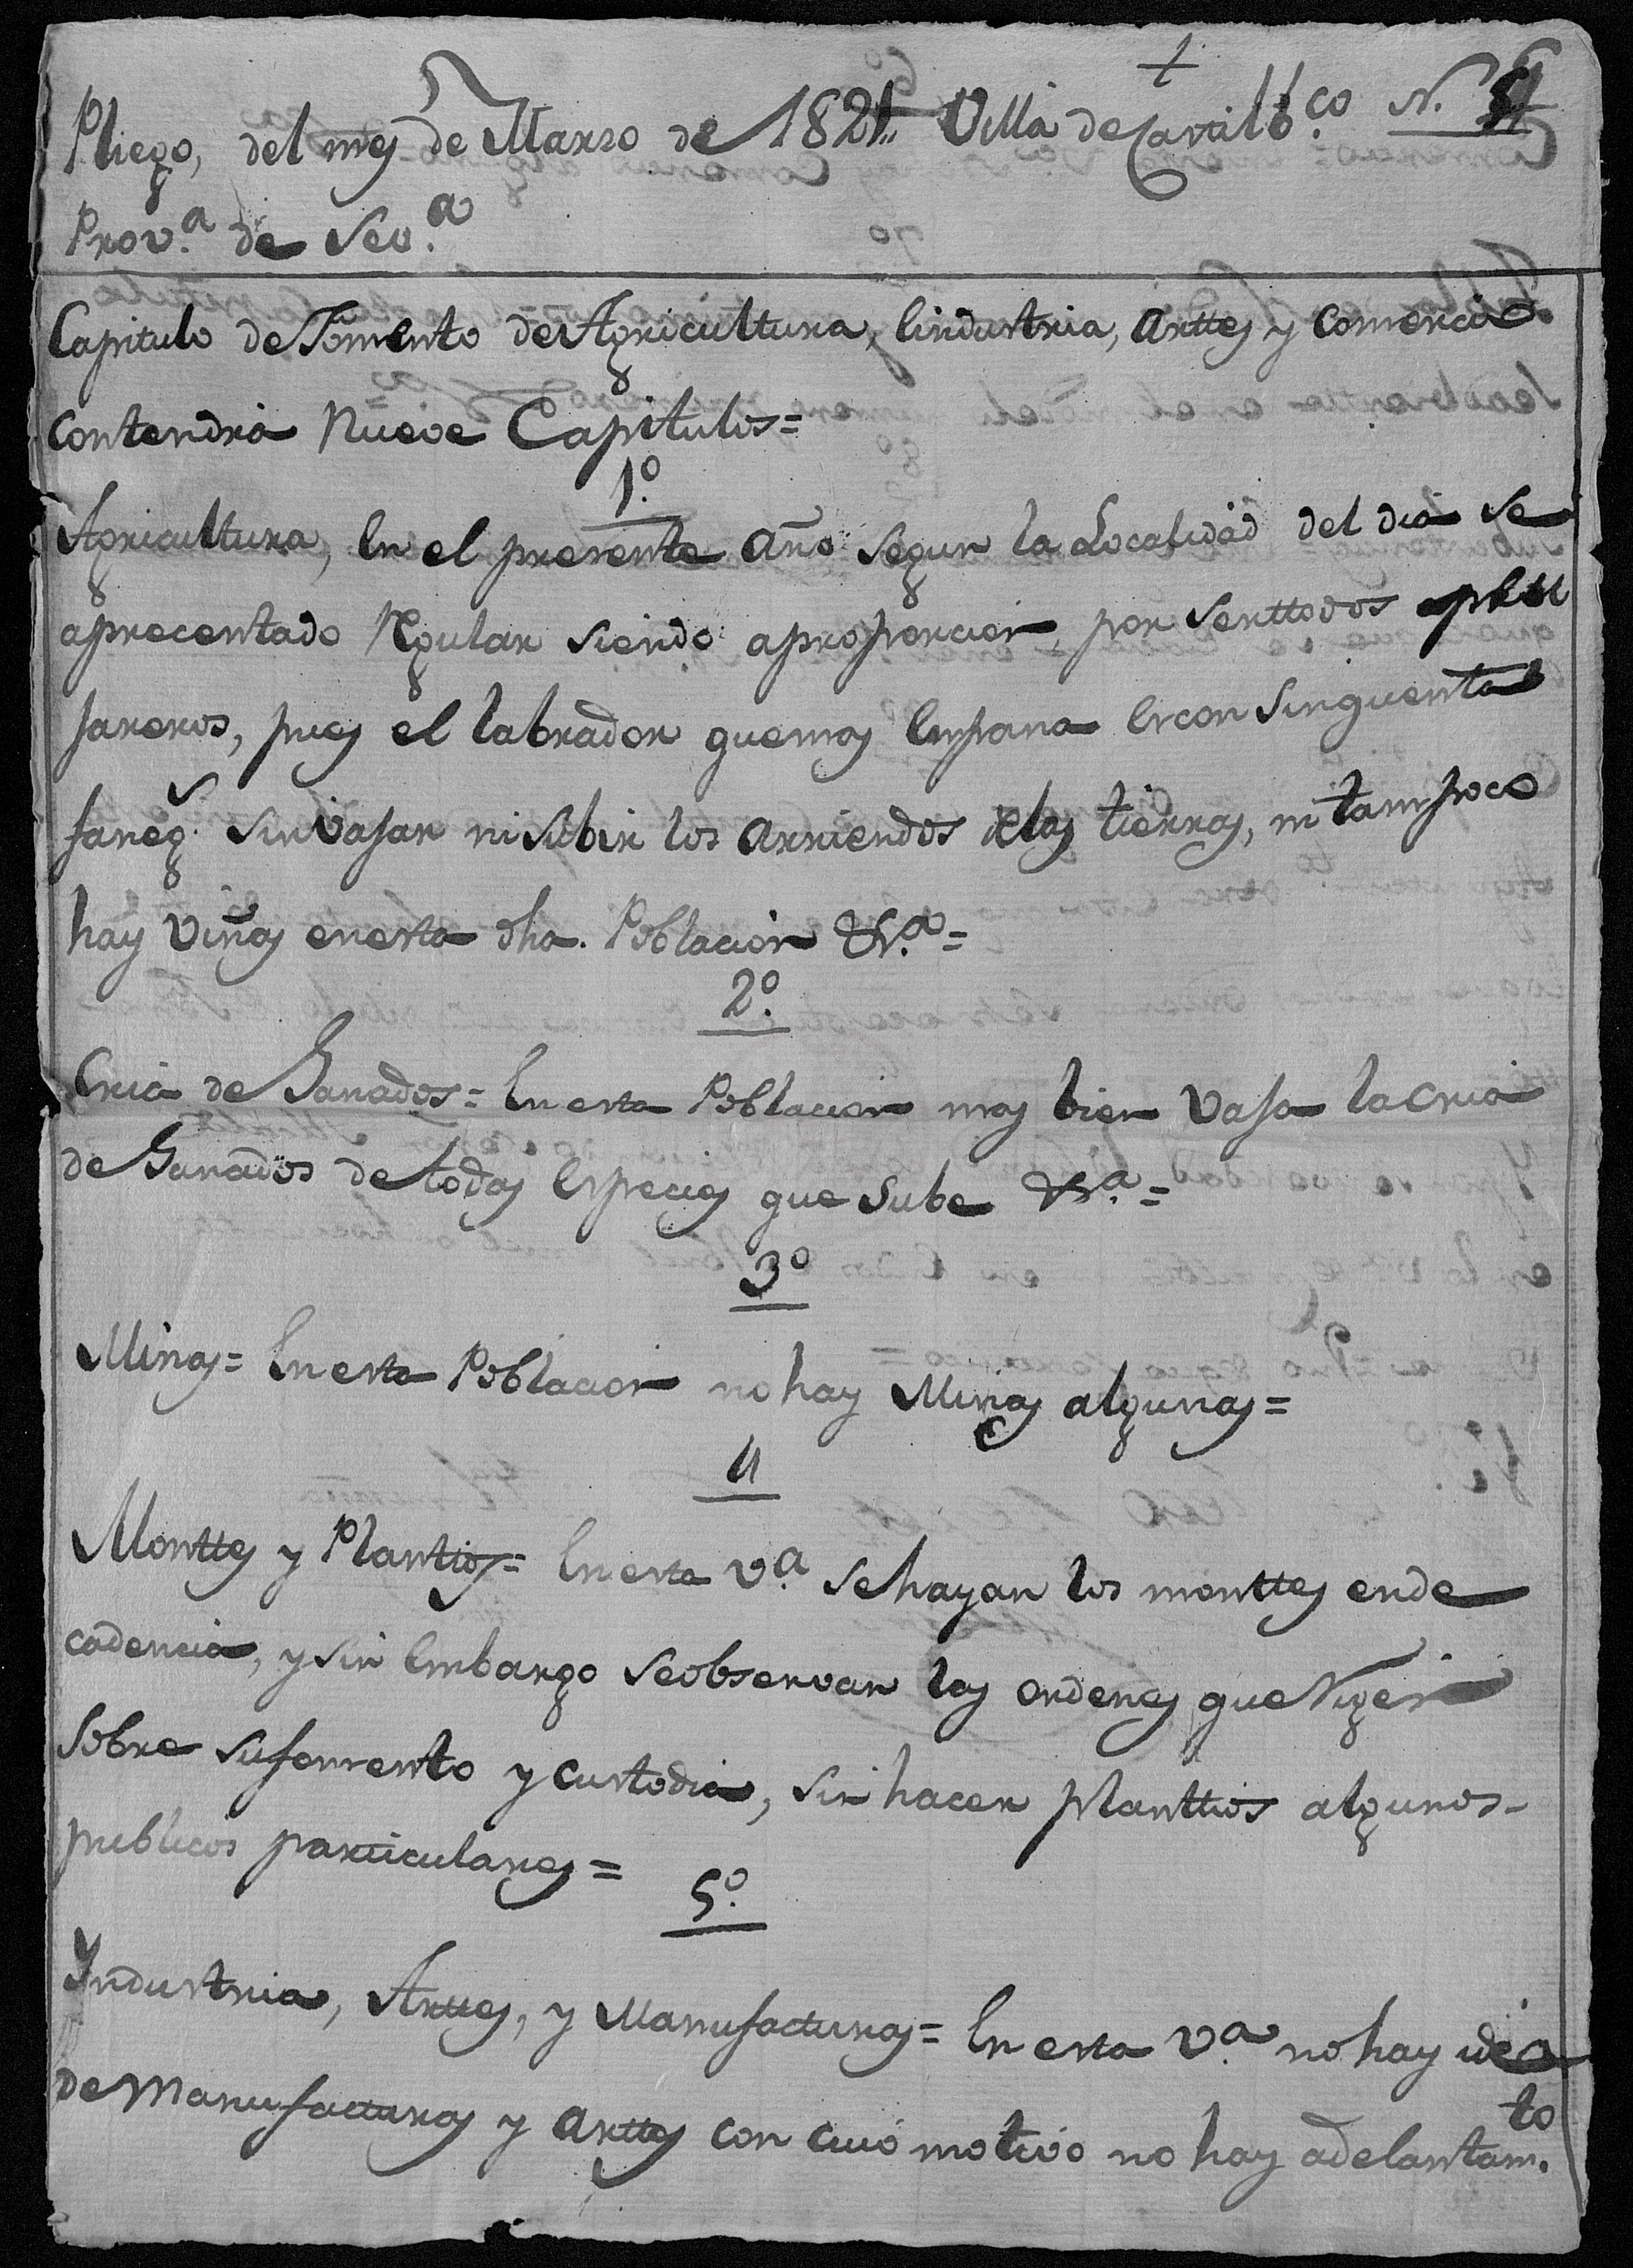 Pliego, del mes de Marzo de 1821. Villa de Castilbco N.
Prov.a de Sev.a
Capitulo de Fomento de Agricultura, Eindustria, Arttes y Comercio
contendrá Nueve Capitulos=
1º
Agricultura, En el presente año segun la Localidad del dia se
aprecentado Regular siendo aproporcion, por serttodos
pareros, pues el labrador quemas Empana Escon Sinquenta
faneg.s sinvajar nisubir los arriendos delas tierras, ni tampoco
hay viñas enesta dha. Poblacion &.a=
2º
Cria de Ganados= Enesta Poblacion mas bien vaja lacria
de Ganados detodas Especies que sube &.a=
3º
Minas= Enesta Poblacion nohay Minas algunas=
4
Monttes y Plantios= Enesta v.a sehayan los monttes ende
cadencia, y sin Embargo seobservan las ordenes queRigen
sobre sufomento y custodia, sin hacer planttios algunos
publicos particulares=
5º
Yndustria, Arttes, y Manufacturas= En esta v.a nohay idea
de Manufacturas y arttes con cuio motivo no hay adelantam.to